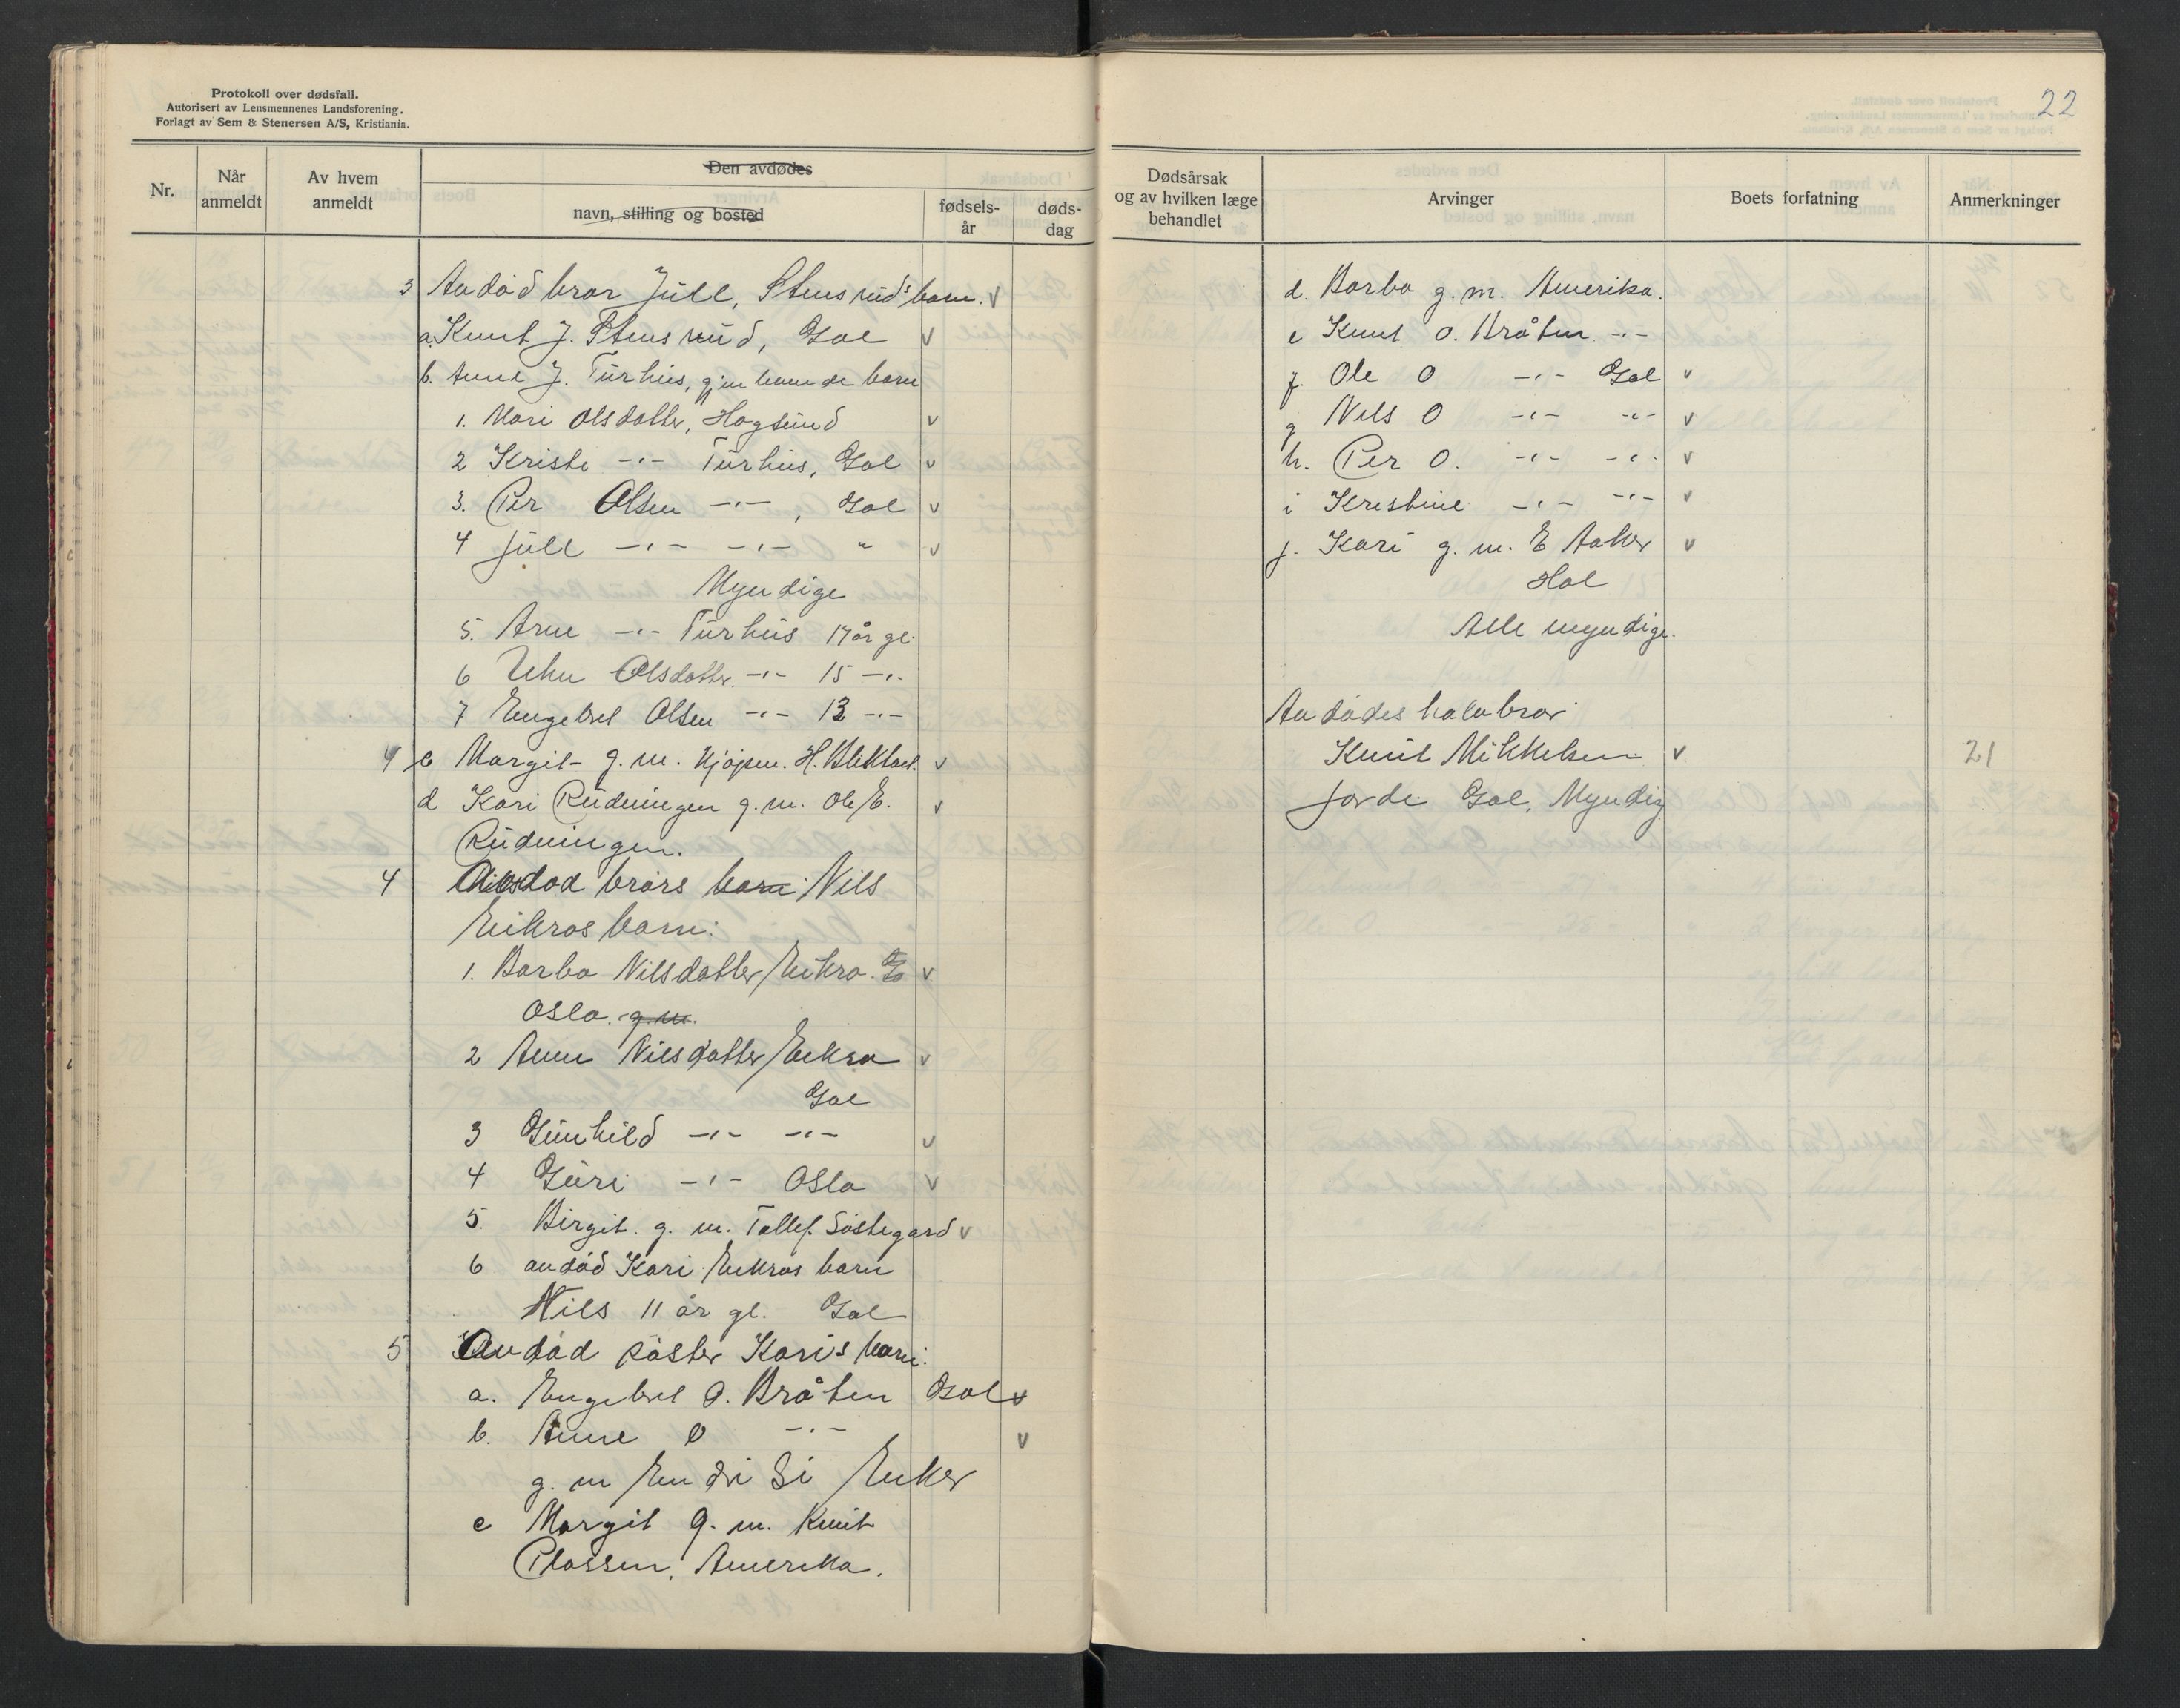 Protokoll over dødsfall.
Autorisert av Lensmennenes Landsforening.
Forlagt av Sem & Stenersen A/S, Kristiania.
Nr.
Når anmeldt
Av hvem anmeldt
Den avdødes
navn, stilling og bosted
fødsels-år
døds-dag
3 Avdød bror Jull, Stensruds barn. v
a. Knut J. Stensrud, Gol v
b. Anne J. Turhus, gjenlevende barn
1. Mari Olsdatter, Hagsund v
2 Kristi -"- Turhus, Gol v
3. Per Olsen -"-, Gol v
4 Jull -"- -"- " v
Myndige
5. Arne -"- Turhus 17 år gl.
6 Olsdatter -"- 15 -"-
7 Engebret Olsen -"- 13 -"-
4 c Margit g.m. H. v
d Kari Rudningen g.m. Ole E. v
Rudningen.
4 Avdød brors barn Nils
Eikros barn:
1. Barbo Nilsdatter Eikro. v
Oslo. g.m.
2 Anne Nilsdatter Eikro v
Gol
3 Gunhild -"- -"- v
4 Guri -"- Oslo v
5. Birgit g.m. Tollef Søstegard v
6 avdød Kari Eikros barn
Nils 11 år gl. Gol
5 Avdød søster Karis barn.
a. Engebret O. Bråten Gol v
b. Anne O -"- v
g.m Endri
c Margit g.m. Knut
Plassen, Amerika.
22
Dødsårsak og av hvilken læge behandlet
Arvinger
Boets forfatning
Anmerkninger
d. Barbo g.m. Amerika.
e Knut O. Bråten -"-
f. Ole O -"- Gol v
g Nils O -"- -"- v
h. Per O. -"- -"- v
i Kristine -"- -"- v
j. Kari g.m. E Aaker v
Hol
Alle myndige.
Avdødes halvbror
Knut Mikkelsen v 21
Jorde Gol, Myndig